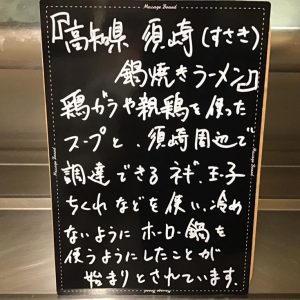 Message Board
『高知県 須崎(すさき)
鍋焼きラーメン』
鶏ガラや親鶏を使った
スープと、須崎周辺で
調達できるネギ、玉子
ちくわなどを使い、冷め
ないようにホーロー鍋を
使うようにしたことが
始まりとされています.